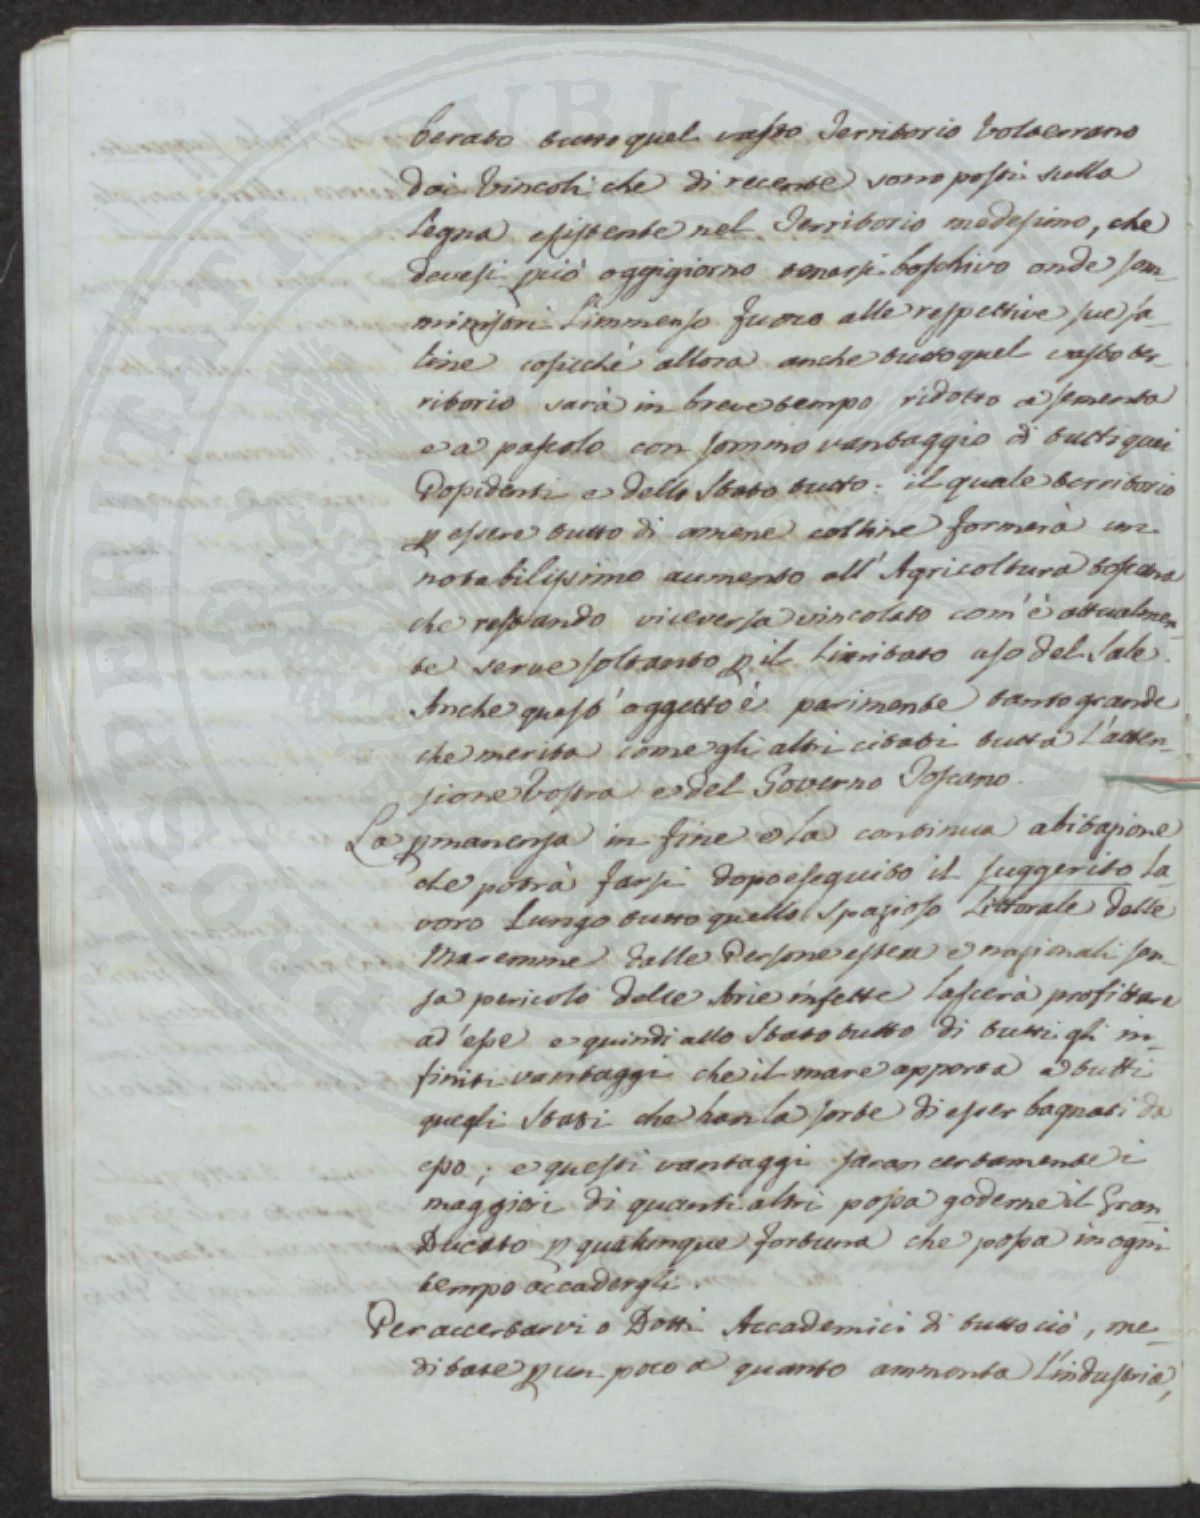 berato tutto quel vasto Territorio Volterrano
dai Vincoli che di recente sono posti sulla
Legna esistente nel Territorio medesimo, che
devesi più oggigiorno tenersi boschivo onde som-
ministri l'immenso fuoco alle respettive sue sa-
line cosicchè allora anche tutto quel vasto ter-
ritorio sarà in breve tempo ridotto a sementa
e a pascolo con sommo vantaggio di tutti quei
Possidenti e dello Stato tutto: il quale territorio
p essere tutto di amene colline formerà un
notabilissimo aumento all'Agricoltura toscana
che restando viceversa vincolato com'è attualmen-
te serve soltanto p il limitato uso del Sale.
Anche quest'oggetto è parimente tanto grande
che merita come gli altri citati tutta l'atten-
zione Vostra e del Governo Toscano.
La pmanenza in fine e la continua abitazione
che potrà farsi dopo eseguito il suggerito la-
voro Lungo tutto quello spazioso Littorale delle
Maremme dalle Persone estere e nazionali sen-
za pericolo delle Arie infette lascerà profittare
ad esse e quindi allo Stato tutto di tutti gli in-
finiti vantaggi che il mare apporta a tutti
quegli Stati che han la sorte di esser bagnati da
esso; e questi vantaggi saran certamente i
maggiori di quanti altri possa goderne il Gran
Ducato p qualunque fortuna che possa in ogni
tempo accadergli.
Per accertarvi o Dotti Accademici di tutto ciò, me-
ditate p un poco a quanto ammonta l'industria,
PROSPERITATI PUBLICAE